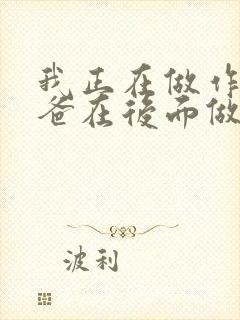 我正在做作
爸在後面做
波利